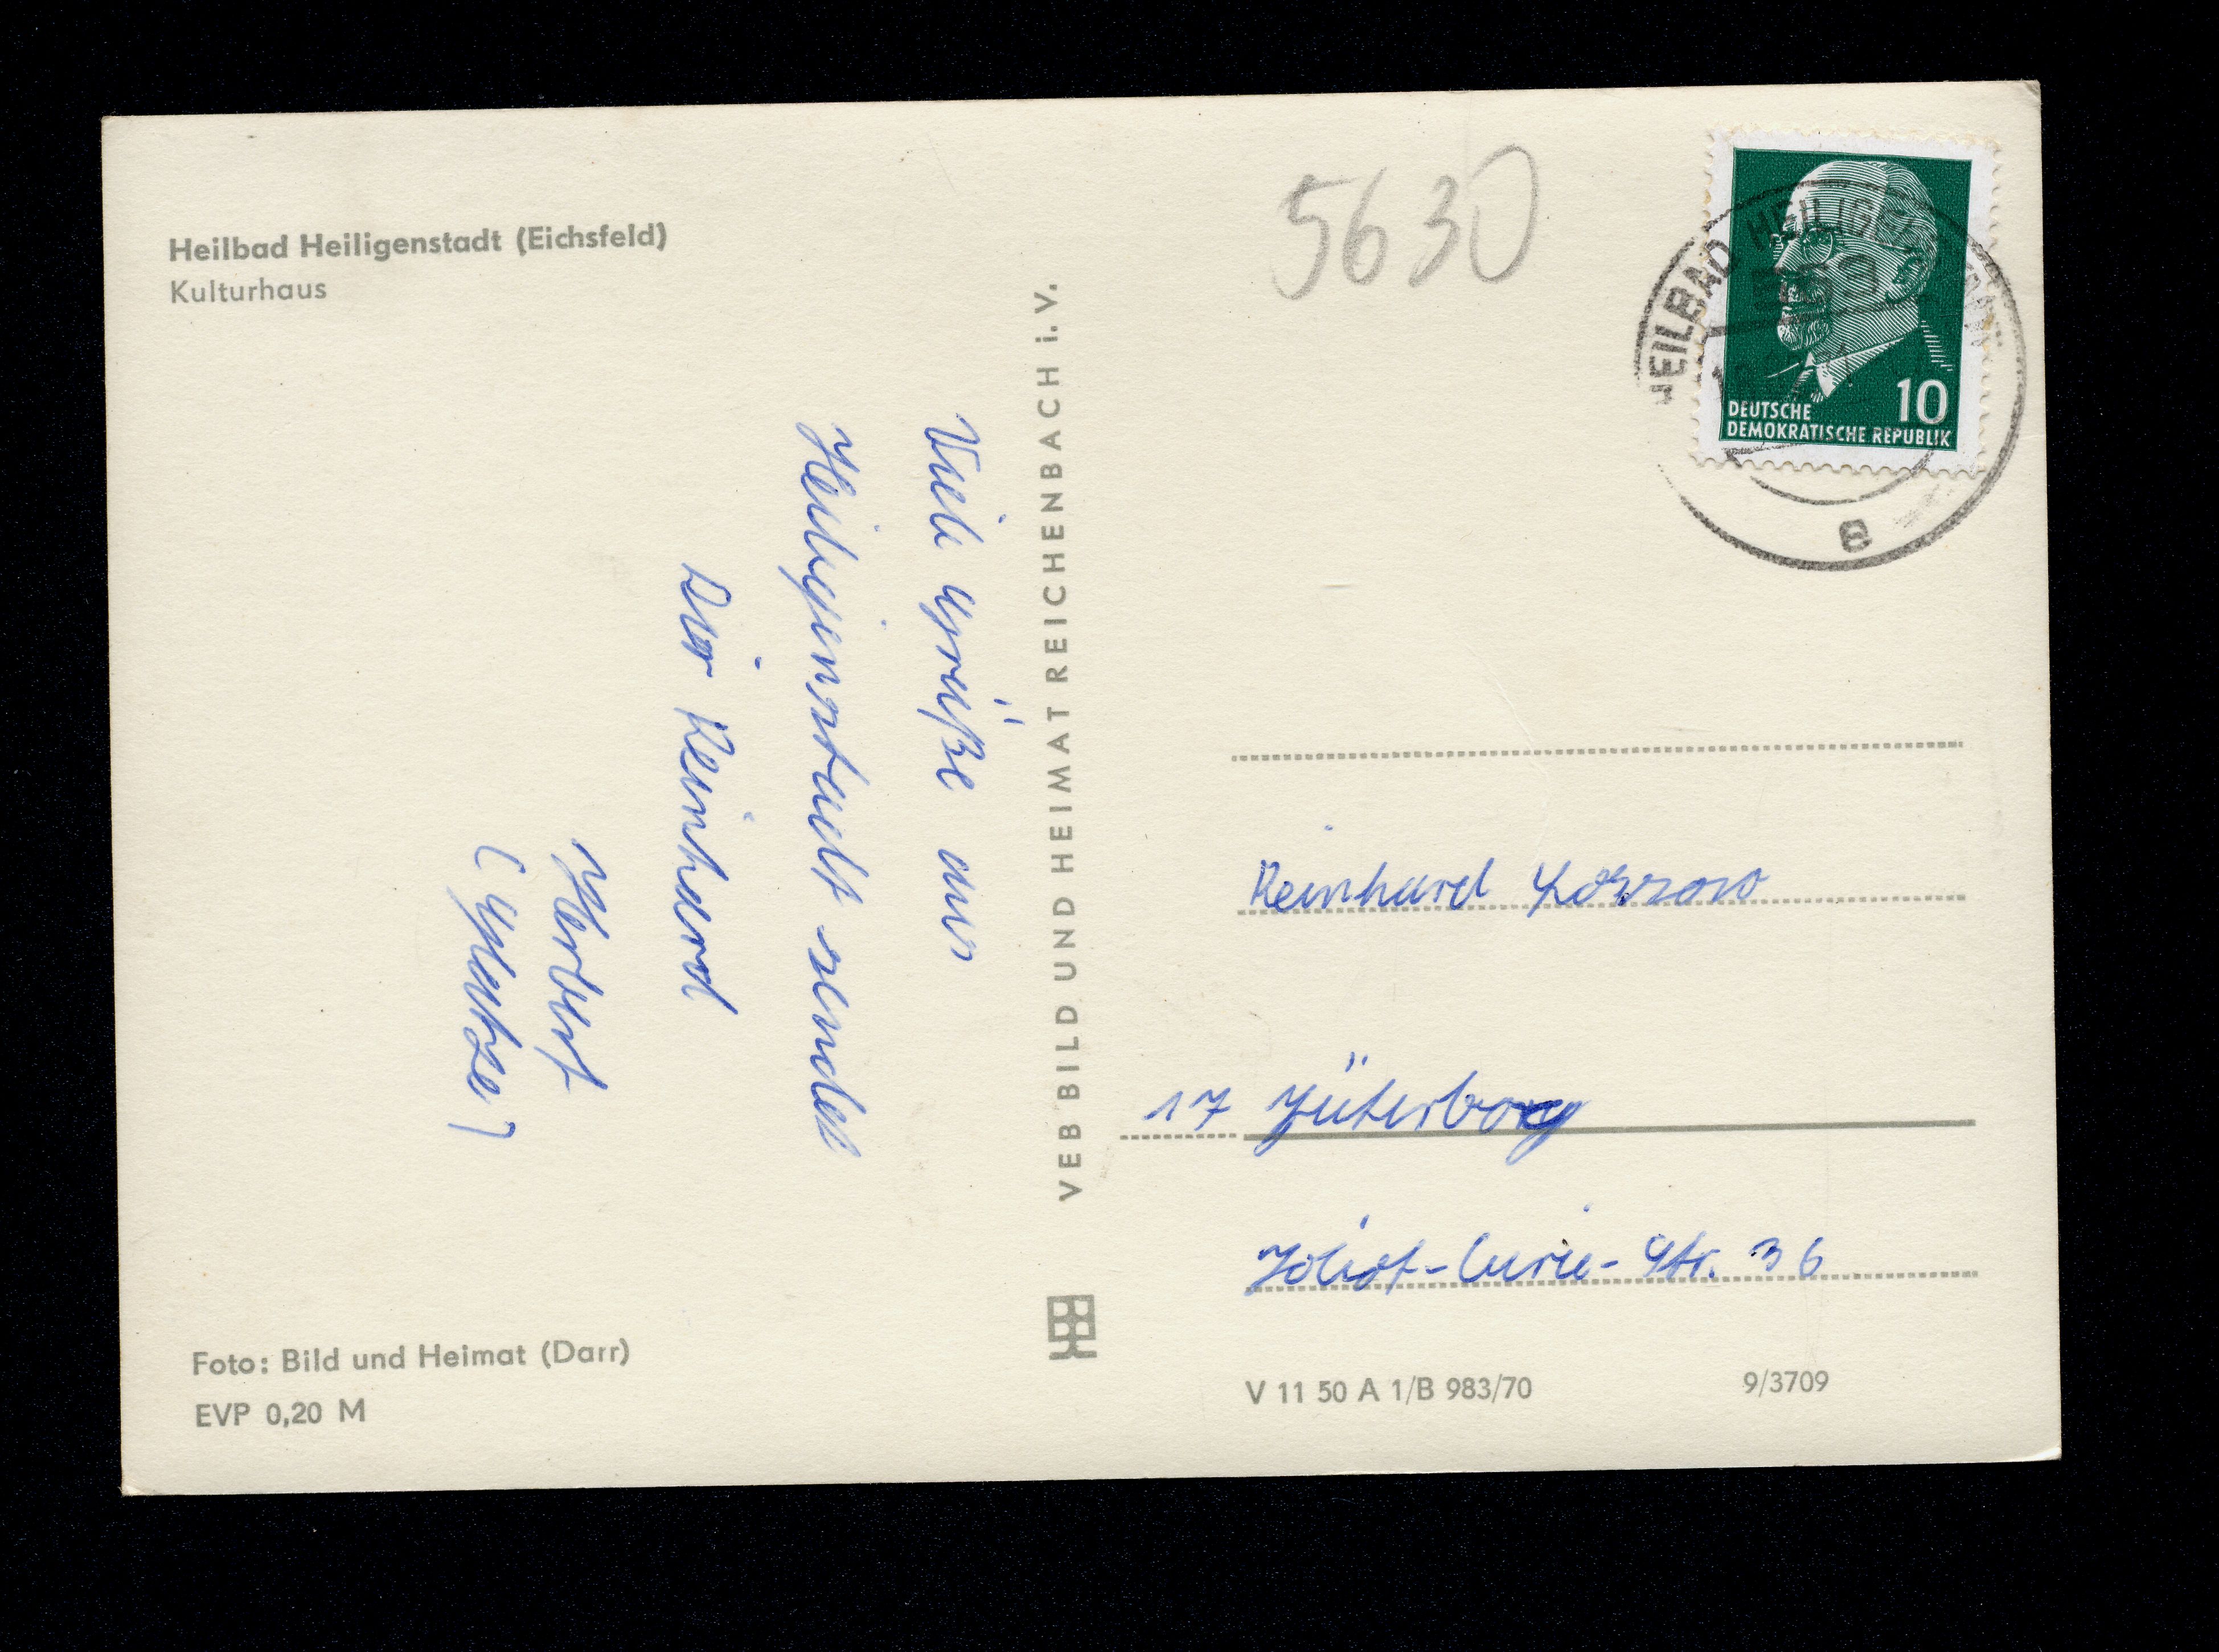 Heilbad Heiligenstadt (Eichsfeld)
Kulturhaus
Viele Grüße aus
Heiligenstadt sendet
Dir Reinhard
Herbert
Foto: Bild und Heimat (Darr)
EVP 0,20 M
VEB BILD UND HEIMAT REICHENBACH i. V.
5630
HEILBAD HEILIGENSTADT
a
10
DEUTSCHE
DEMOKRATISCHE REPUBLIK
Reinhard
17 Jüterbog
Joliot-Curie-Str. 36
V 11 50 A 1/B 983/70
9/3709